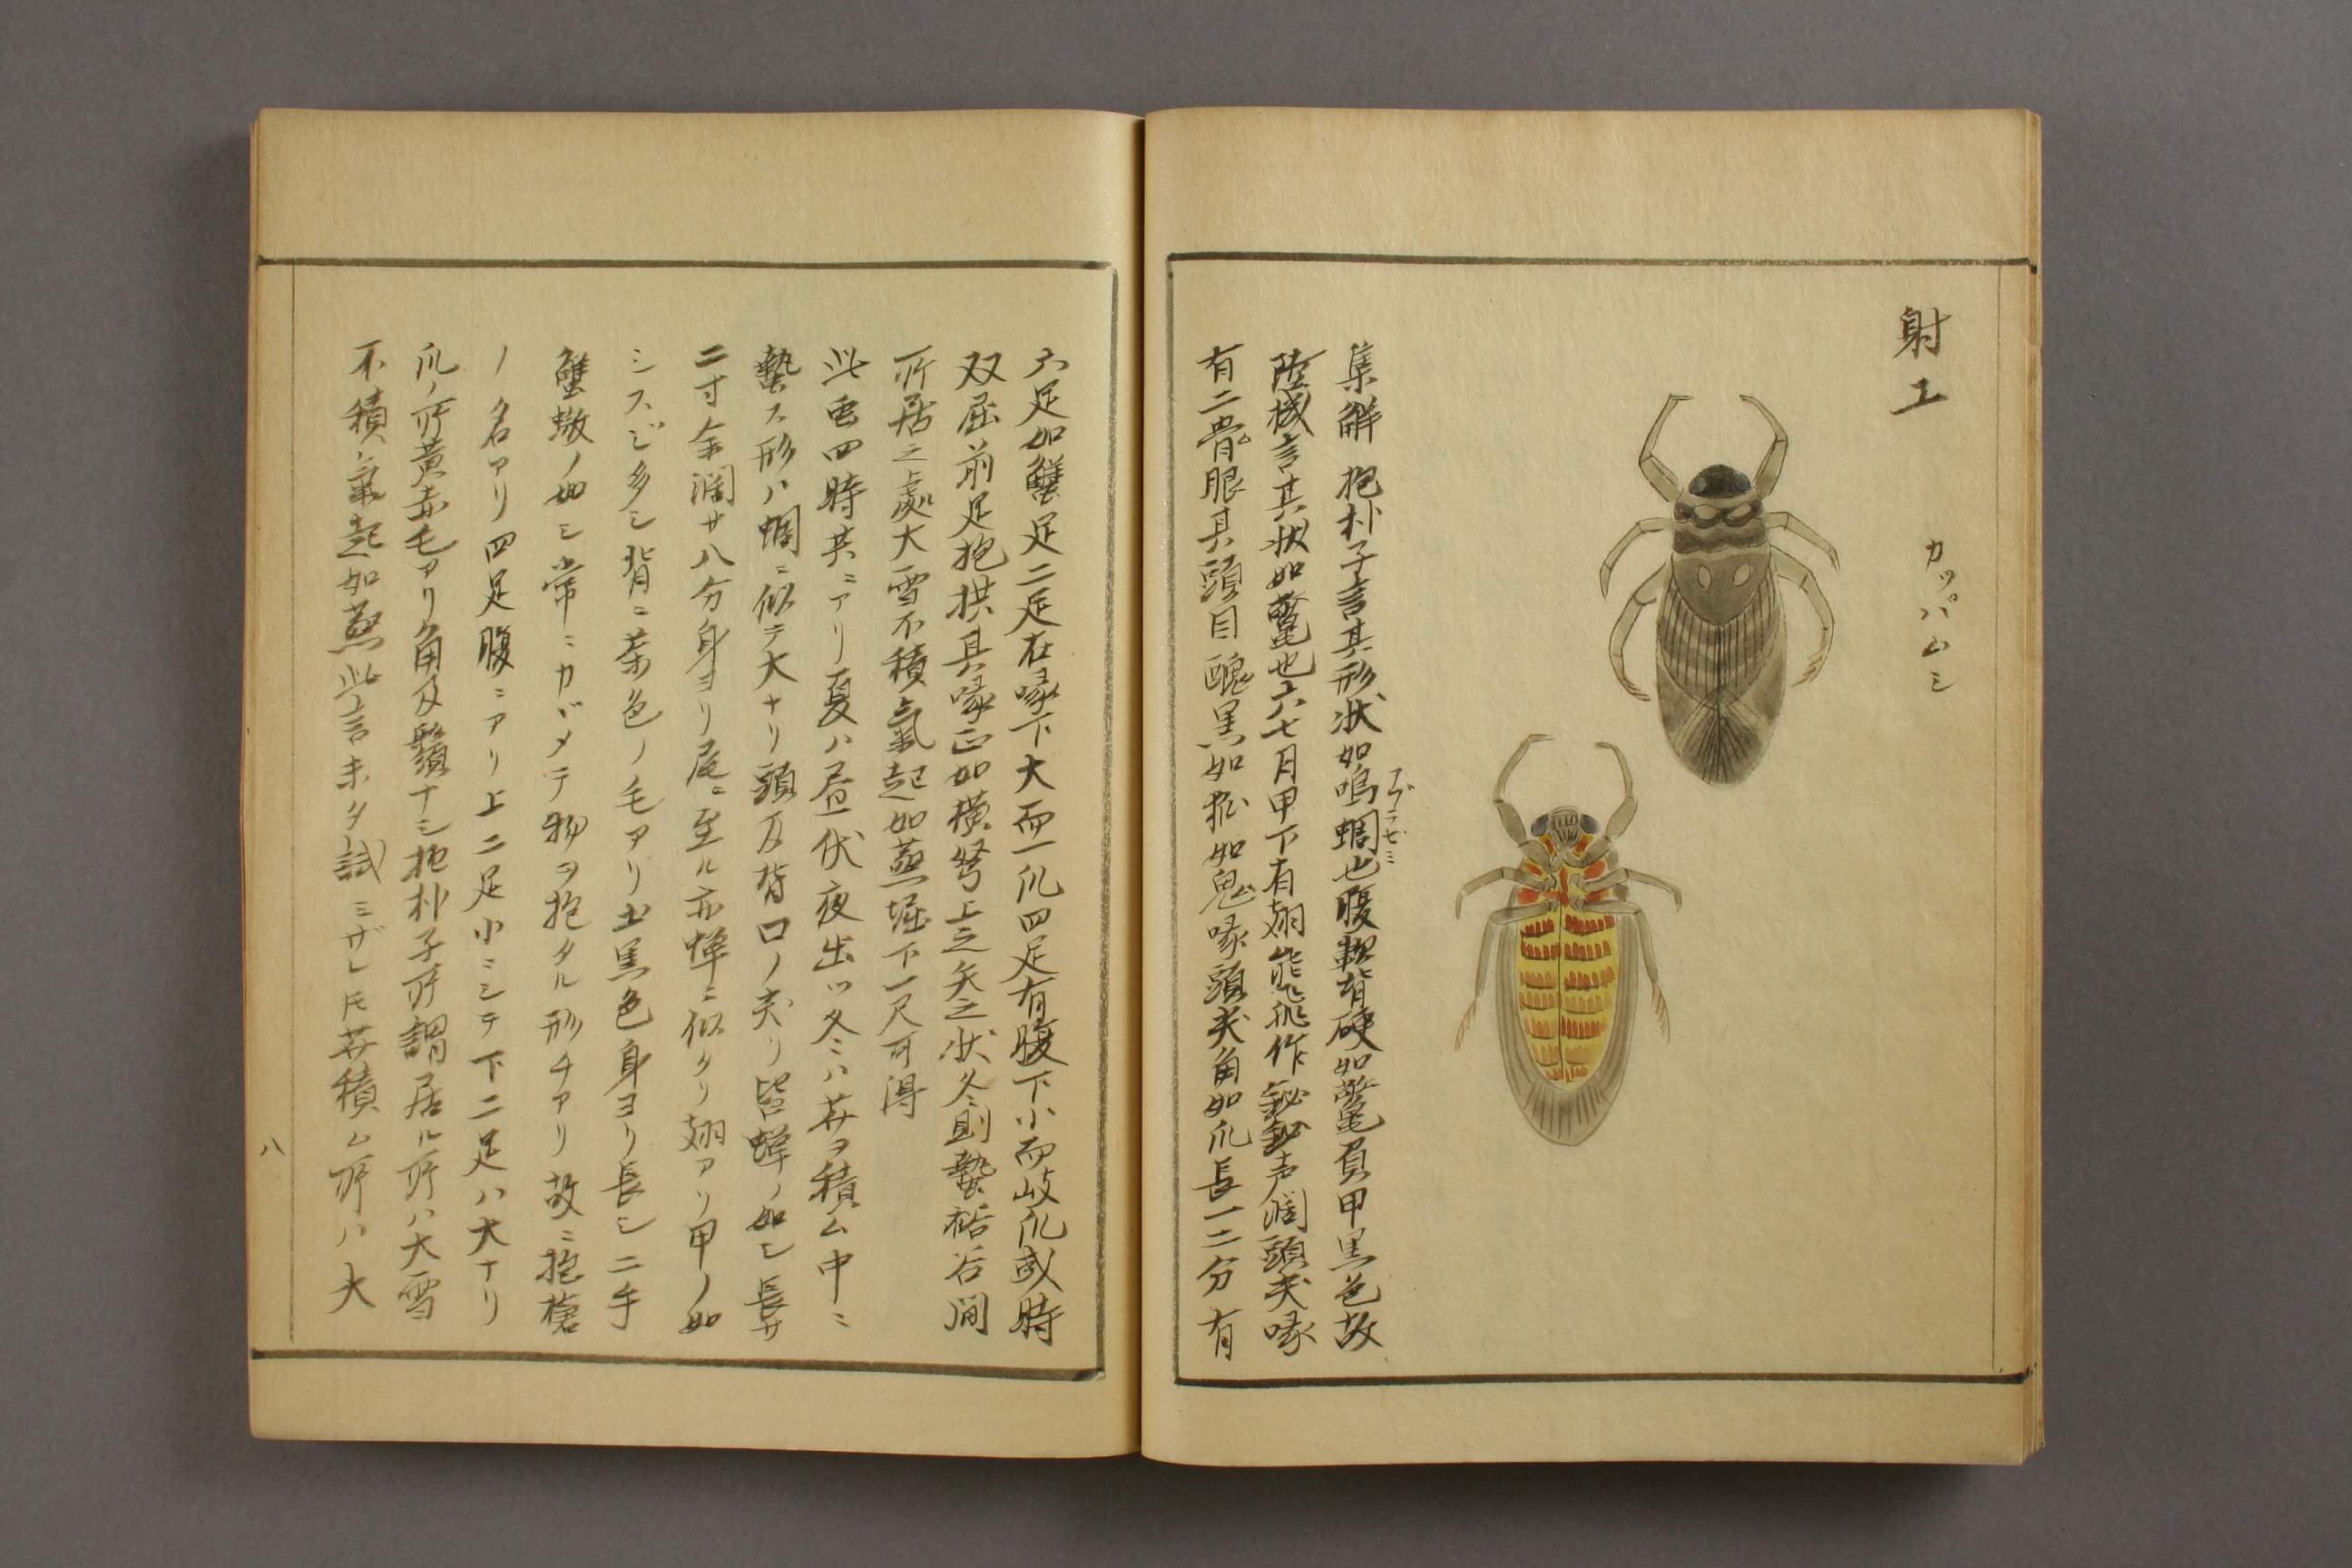 射工
カッパムシ
集解 抱朴子言其形状如鳴蜩也腹軟背硬如鼈負甲黒色故
陸機言其状如鼈也六七月甲下有翅能飛作鉍鉍声闊頭尖喙
有二骨眼其頭目醜黒如狐如鬼喙頭尖角如爪長一二分有
六足如蟹足二足在喙下大而一爪四足有腹下小而岐爪或時
双屈前足抱拱其喙正如横弩上之矢之状冬則蟄 谷间
所居之處大雪不積氣起如蒸堀下一尺可得
此虫四時共ニアリ夏ハ昼伏夜出ツ冬ニハ 積ム中ニ
蟄ス形ハ蜩ニ似テ大ナリ頭及背口ノ尖リ皆蝉ノ如シ長サ
二寸余濶サ八分身ヨリ尾ニ至ル亦蝉ニ似タリ翅アリ甲ノ如
シスジ多シ背ニ茶色ノ毛アリ 黒色身ヨリ長シ二手
蟹螯ノ如シ常ニカヾメテ物ヲ抱タル形チアリ故ニ抱槍
ノ名アリ四足腹ニアリ上二足小ニシテ下二足ハ大ナリ
爪ノ所黄赤毛アリ角及鬚ナシ抱朴子所謂居ル所ハ大雪
不積氣起如蒸此言未タ試ミザレ 積ム所ハ大
八